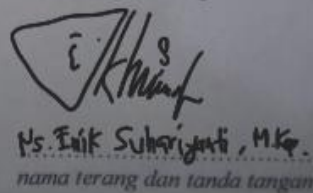 Ns. Enik Suhariyanti, M.Kep.
nama terang dan tanda tangan